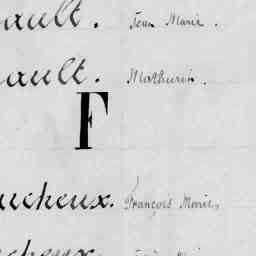 ault. Jean Marie.
ault. Mathurin.
F
ucheux. François Marie,